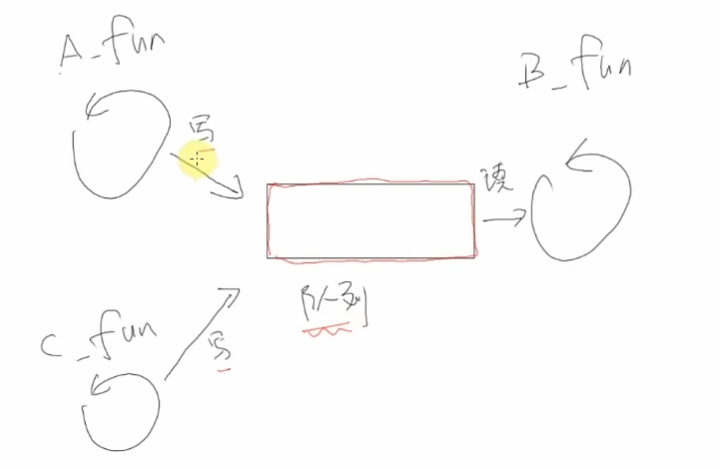 A_fun
B_fun
写
读
队列
C_fun
写